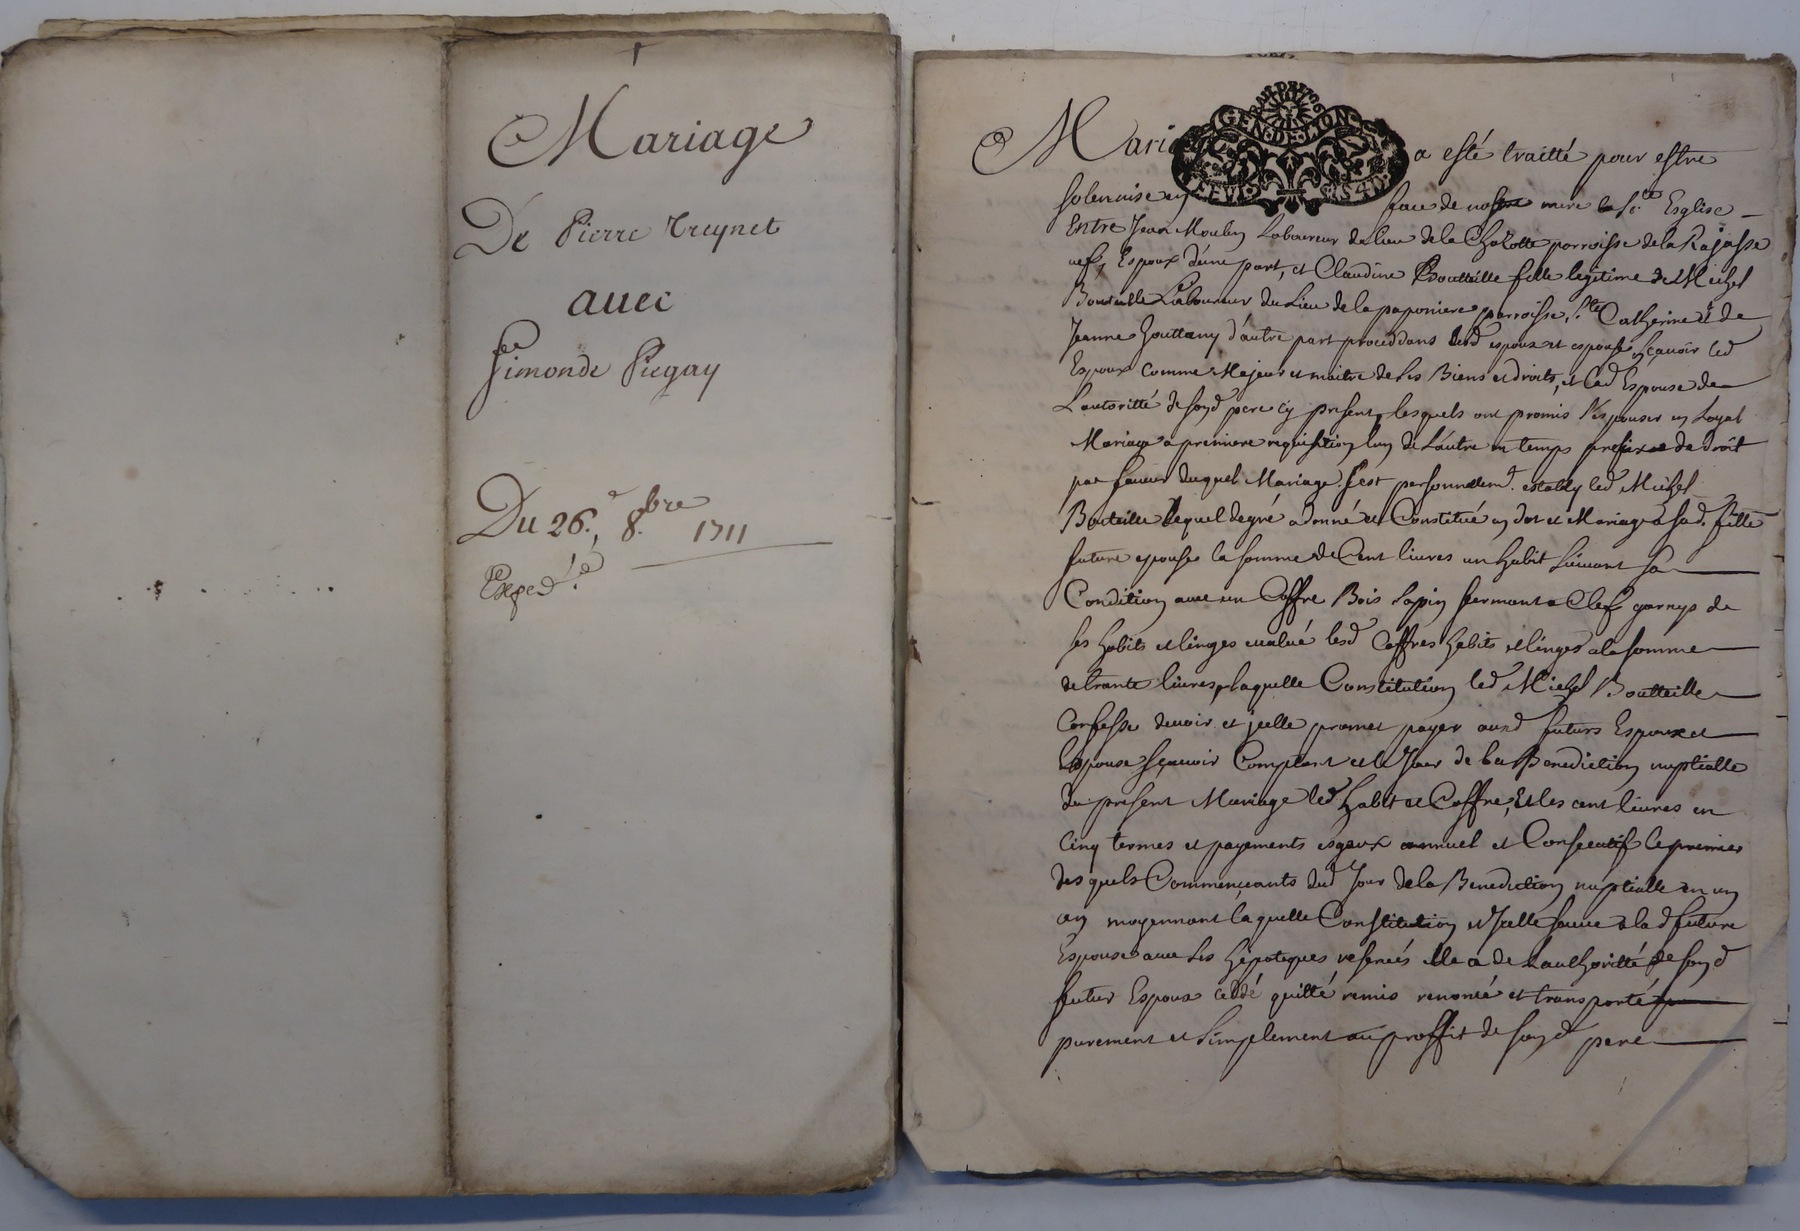 Mariage
De Pierre Treynet
auec
Simonde Piegay
Du 26.e 8.bre 1711
Exped.ée
GEN·DE·LYON
Mari a esté traitté pour estre
solennise en face de nostre mere la s.te Esglise
Entre Jean Moulin Laboureur du lieu de la Chalotte parroisse de la Rajasse
Espoux d'une part, et Claudine Boutteille fille legitime de Michel
Bouteille Laboureur du Lieu de la paponiere parroisse s.te Catherine et de
Jeanne Gouttany d'autre part proceddans lesd espoux et espouse sçauoir led
Espoux comme Majeur et maitre de ses Biens et droits, et lad Espouse de
L'autoritté de sond pere cy present, lesquels ont promis s'espouser en Loyal
Mariage a premiere requisition l'un de L'autre en temps prefix de droit
par faueur duquel Mariage s'est personnelem.t estably led Michel
Bouteille lequel de gré a donné et Constitué en dot et Mariage a sad. fille
future espouse la somme de Cent liures un habit suiuant sa
Condition auec un Coffre Bois sapin fermant a Clef garnys de
ses habits et linges eualué lesd Coffres habits et linges a la somme
de trante liures, laquelle Constitution led Michel Boutteille
Confesse deuoir et jcelle promet payer ausd futurs Espoux et
Espouse sçauoir Comptant et le Jour de la Benediction nuptialle
du present Mariage led habit et Coffre, Et les cent liures en
cinq termes et payements esgaux annuel et Consecutif le premier
des quels Commençants dud Jour de la Benediction nuptialle en un
an moyennant laquelle Constitution et Jcelle sauue a la d future
Espouse auec ses hipoteques reserués elle a de Lauthoritté de sond
futur Espoux ceddé quitté remis renoncé et transporté
purement et simplement au proffit de sond pere